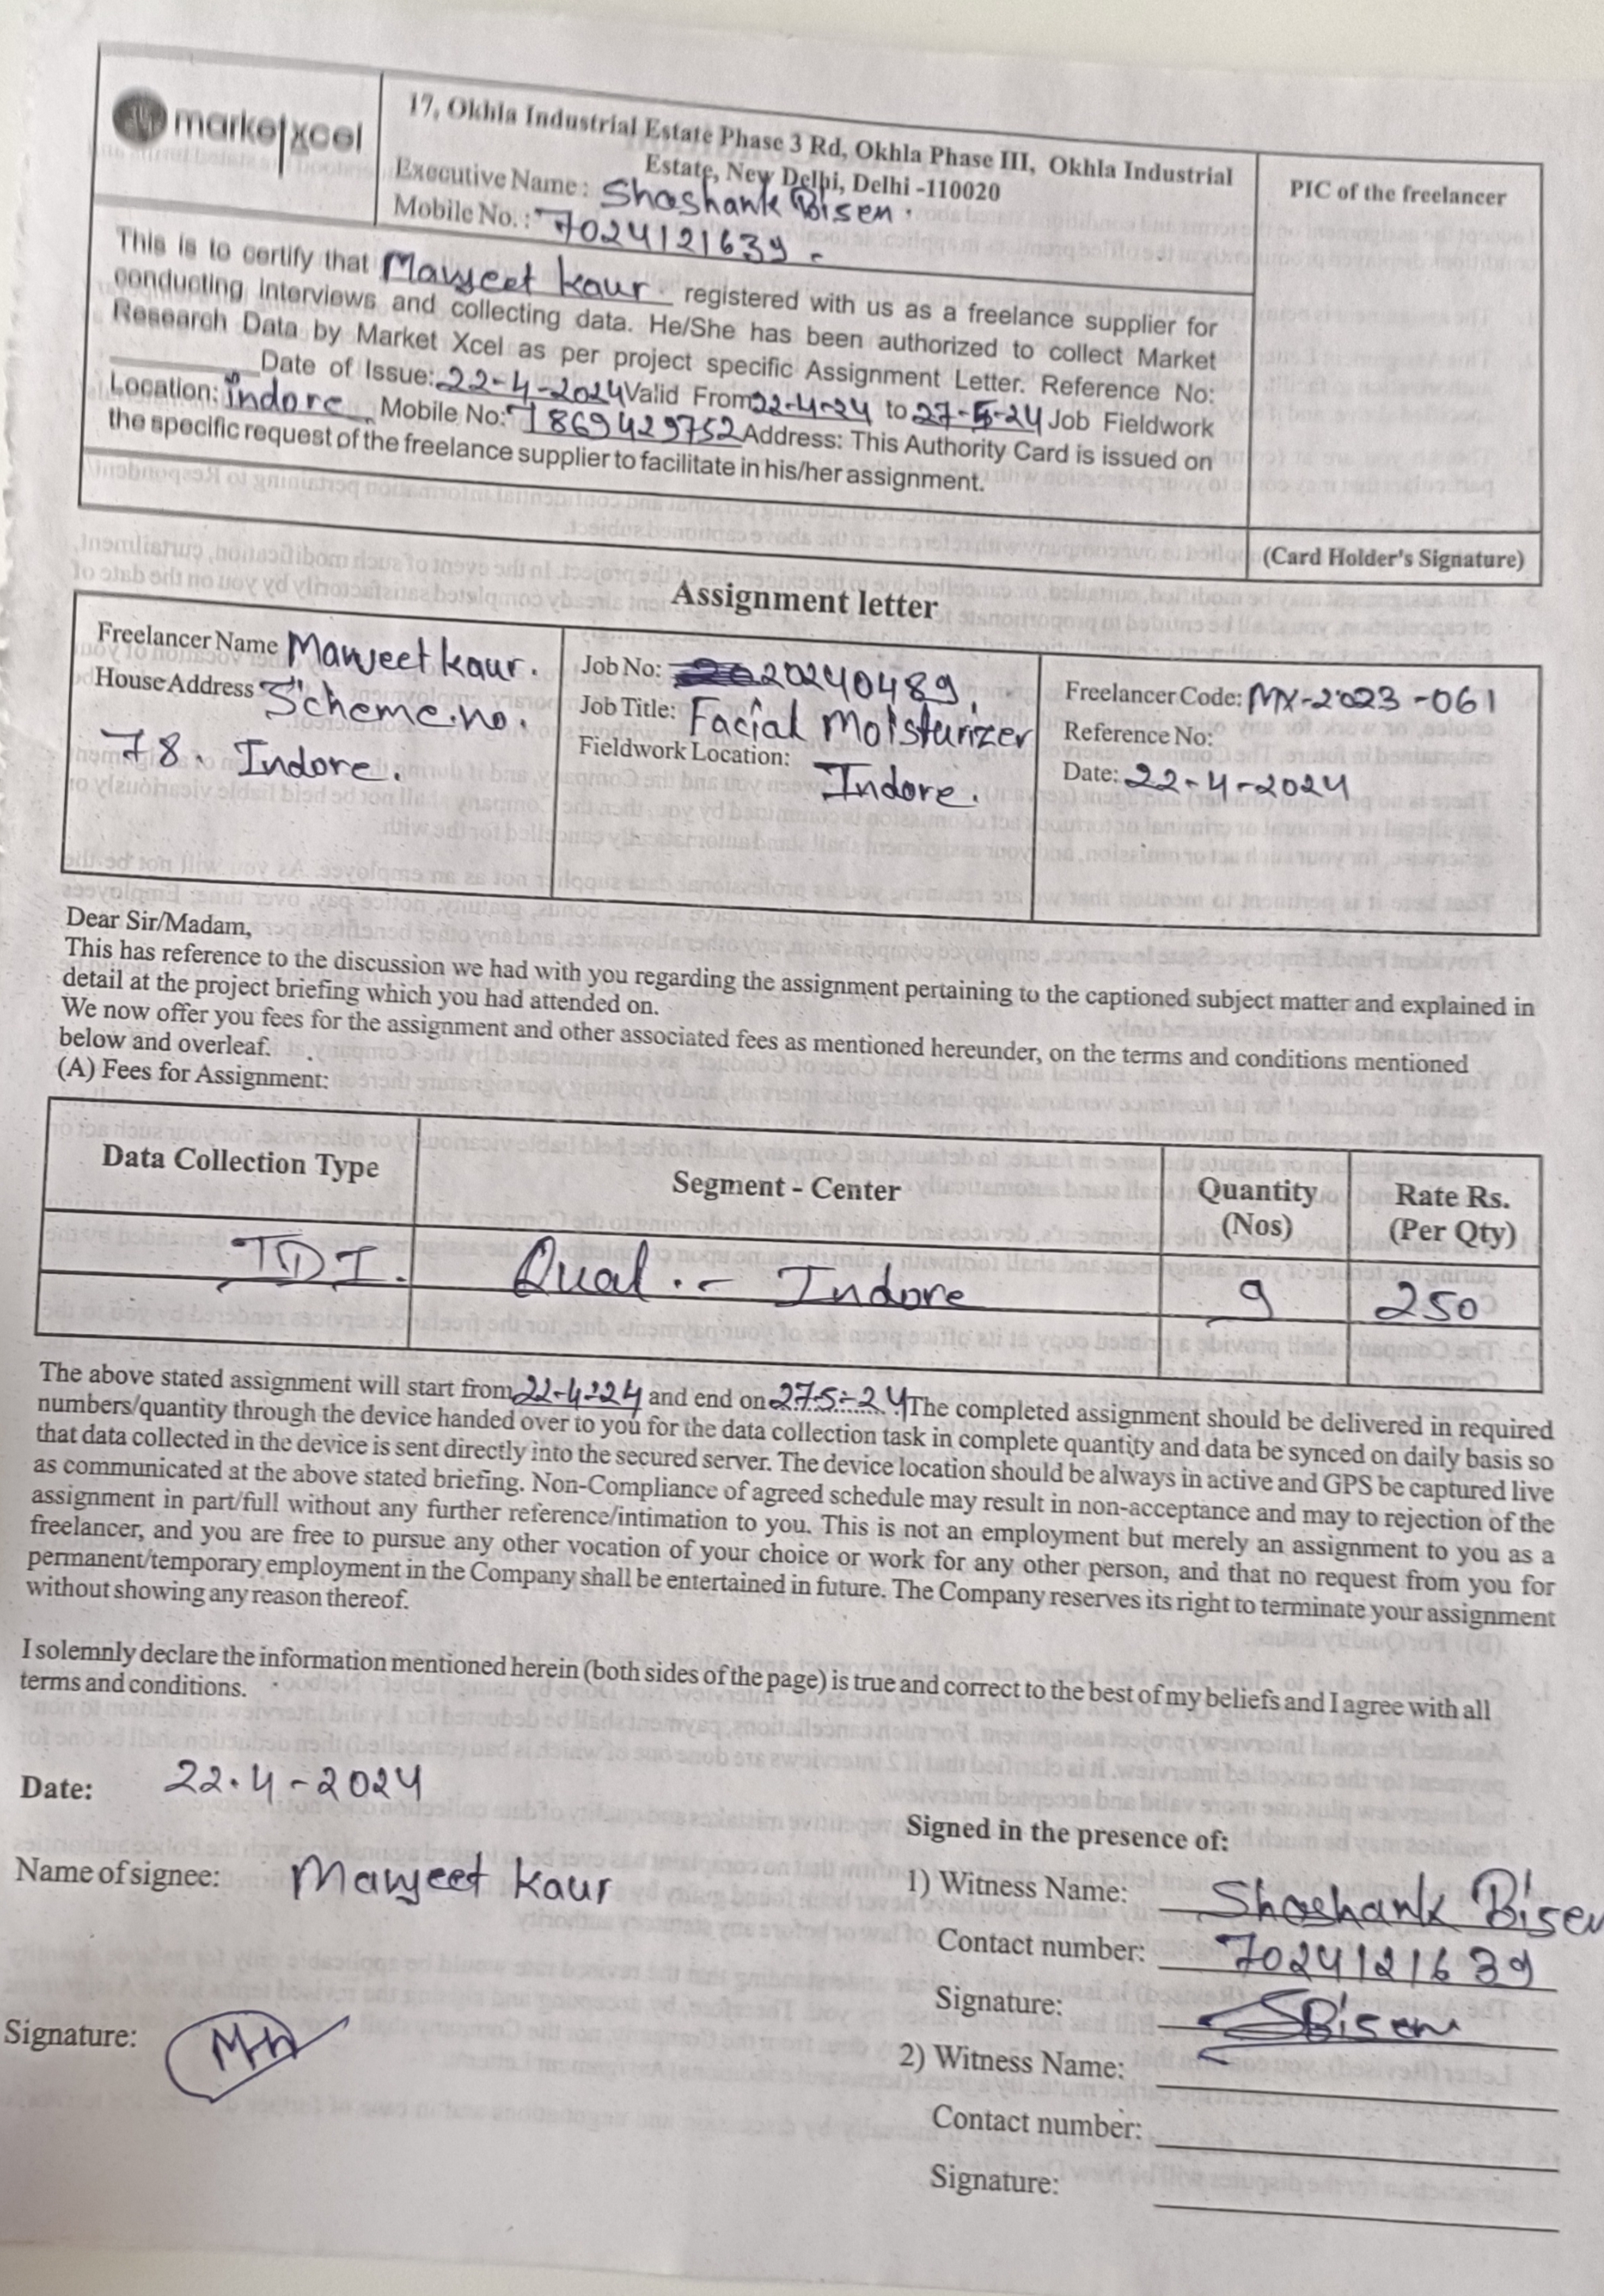 marketxcel
17, Okhla Industrial Estate Phase 3 Rd, Okhla Phase III, Okhla Industrial
Estate, New Delhi, Delhi -110020
Executive Name : Shashank Bisen.
Mobile No. : 7024121639
PIC of the freelancer
This is to certify that Manjeet kaur. registered with us as a freelance supplier for
conducting interviews and collecting data. He/She has been authorized to collect Market
Research Data by Market Xcel as per project specific Assignment Letter. Reference No:
________Date of Issue: 22-4-2024 Valid From 22-4-24 to 27-5-24 Job Fieldwork
Location: indore Mobile No: 7869429752 Address: This Authority Card is issued on
the specific request of the freelance supplier to facilitate in his/her assignment.
(Card Holder's Signature)
Assignment letter
Freelancer Name Manjeet kaur.
House Address Scheme.no.
78. Indore.
Job No: 20240489.
Job Title: Facial Moisturizer
Fieldwork Location:
Indore.
Freelancer Code: MX-2023-061
Reference No:
Date: 22-4-2024
Dear Sir/Madam,
This has reference to the discussion we had with you regarding the assignment pertaining to the captioned subject matter and explained in
detail at the project briefing which you had attended on.
We now offer you fees for the assignment and other associated fees as mentioned hereunder, on the terms and conditions mentioned
below and overleaf.
(A) Fees for Assignment:
Data Collection Type
Segment - Center
Quantity
(Nos)
Rate Rs.
(Per Qty)
IDI.
Qual. - Indore
9
250
The above stated assignment will start from 22-4-24 and end on 27-5-24 The completed assignment should be delivered in required
numbers/quantity through the device handed over to you for the data collection task in complete quantity and data be synced on daily basis so
that data collected in the device is sent directly into the secured server. The device location should be always in active and GPS be captured live
as communicated at the above stated briefing. Non-Compliance of agreed schedule may result in non-acceptance and may to rejection of the
assignment in part/full without any further reference/intimation to you. This is not an employment but merely an assignment to you as a
freelancer, and you are free to pursue any other vocation of your choice or work for any other person, and that no request from you for
permanent/temporary employment in the Company shall be entertained in future. The Company reserves its right to terminate your assignment
without showing any reason thereof.
I solemnly declare the information mentioned herein (both sides of the page) is true and correct to the best of my beliefs and I agree with all
terms and conditions.
Date: 22.4-2024
Name of signee: Manjeet Kaur
Signature:
Signed in the presence of:
1) Witness Name: Shashank Bisen
Contact number: 7024121639
Signature: SBisen
2) Witness Name:
Contact number:
Signature: